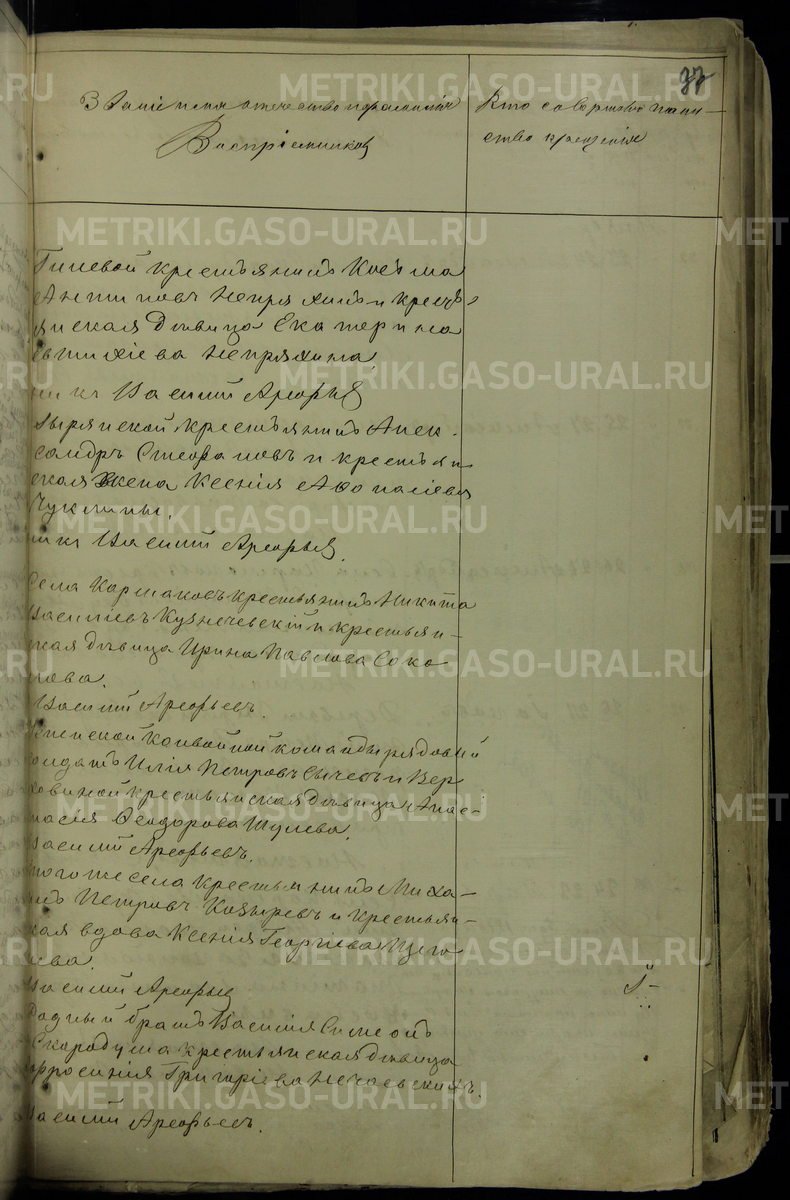 37
Званіе имя отечество и прозваніе
Воспріемниковъ
Кто совершалъ таин-
ство крещенія
крестьянинъ Косьма
Антиповъ Непряхинъ и кресть-
янская дѣвица Екатерина
Евтихіева Непряхина.
Василій Арефьев
крестьянинъ Алек-
сандръ Стефановъ и крестьян
ская жена Ксенія Афонасіева
Чуклины.
Василій Арефьев
Села Кормаковъ крестьянинъ Никита
Василіевъ Кузнечевскій и крестьян-
ская дѣвица Ирина Павлова Соко
лова.
Василій Арефьевъ.
конвойной команды рядовый
солдатъ Илія Петровъ Сычевъ и Вер
ховиной крестьянская дѣвица Анас-
тасія Ѳеодорова Шулева.
Василій Арефьевъ.
того же села крестьянинъ Миха-
илъ Петровъ Козыревъ и крестьян-
ская вдова Ксенія Георгіева
Василій Арефьев
Родный братъ Василія Симеонъ
Скородума крестьянская дѣвица
фросинія Григоріева Нечаевскихъ.
Василій Арефьевъ.
METRIKI.GASO-URAL.RU